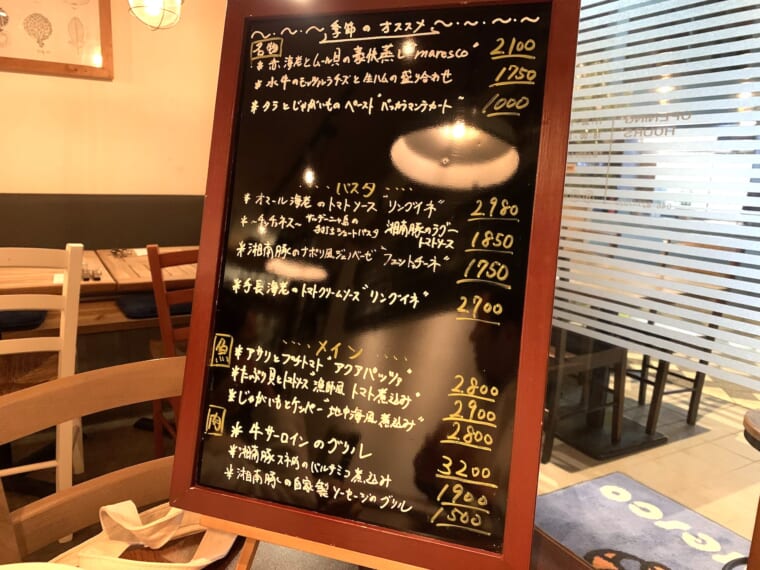 季節のオススメ
名物
*赤海老とムール貝の豪快蒸し"maresco" 2100
*水牛のモッツァレラチーズと生ハムの盛り合わせ 1750
*タラとじゃがいものペースト"バッカラマンテカート" 1000
パスタ
*オマール海老のトマトソース"リングイネ" 2980
*~チッチォネス~サルデーニャ島の手打ちショートパスタ 湘南豚のラグートマトソース 1850
*湘南豚のナポリ風ジェノベーゼ"フェットチーネ" 1750
*手長海老のトマトクリームソース"リングイネ" 2700
メイン
魚
*アサリとプチトマト"アクアパッツァ" 2800
*たっぷり貝とトマトソース 漁師風トマト煮込み" 2900
*じゃがいもとケッパー"地中海風煮込み" 2800
肉
*牛サーロインのグリル 3200
*湘南豚スネ肉のバルサミコ煮込み 1900
*湘南豚の自家製ソーセージのグリル 1500
OPENING
HOURS
resco